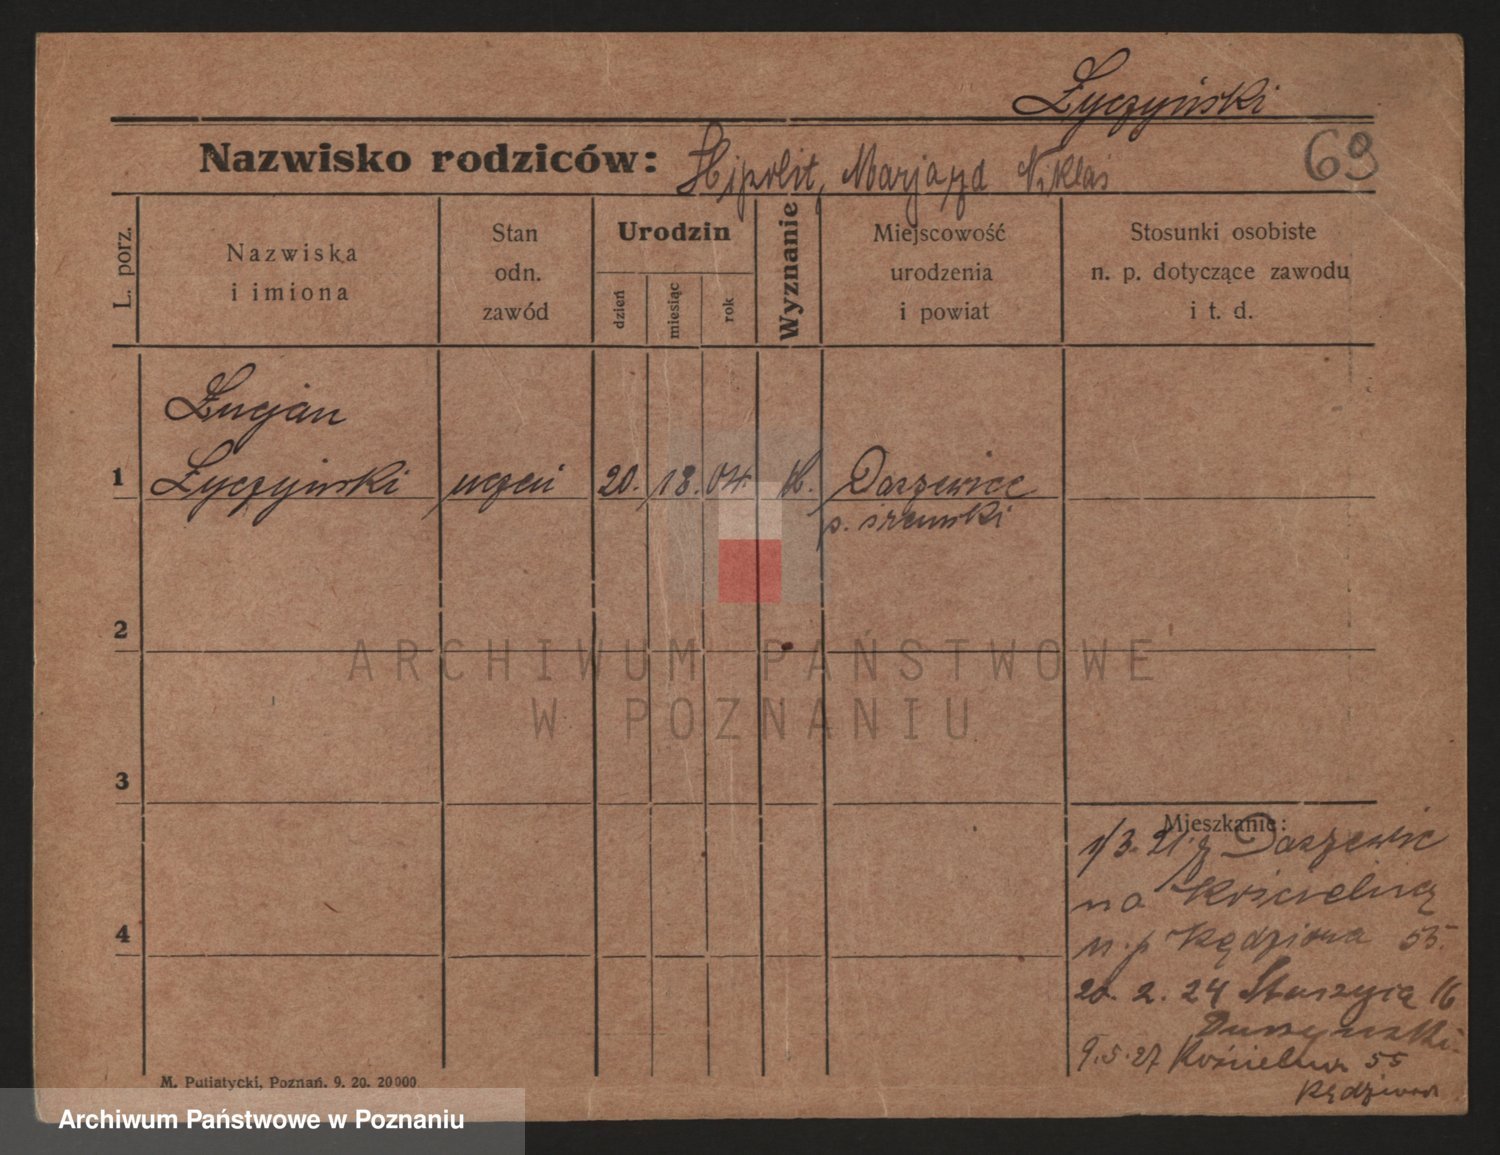 Życzyński
Nazwisko rodziców: Hipolit, Marja zd Niklas
69
L. porz.
Nazwiska
i imiona
Stan
odn.
zawód
Urodzin
dzień
miesiąc
rok
Wyznanie
Miejscowość
urodzenia
i powiat
Stosunki osobiste
n. p. dotyczące zawodu
i t. d.
Łucjan
1 Życzyński uczeń 20. 04. K. Daszewice
p. śremski
2
3
4
Mieszkanie:
1/3. 21. z Daszewic
na Kościelną
n. p Kędziora 55.
20. 2. 24 Staszyca 16
9.5.27 Kościelna 55
Kędziora
M. Putiatycki, Poznań. 9. 20. 20000
ARCHIWUM PAŃSTWOWE
W POZNANIU
Archiwum Państwowe w Poznaniu